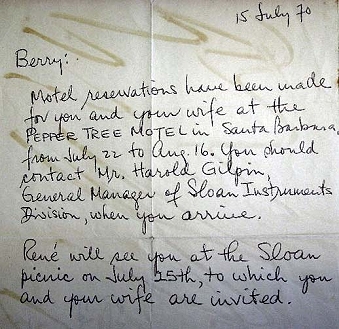 15 July 70
Berry:
Motel reservations have been made
for you and your wife at the
PEPPER TREE MOTEL in Santa Barbara,
from July 22 to Aug. 16. You should
contact Mr. Harold Gilpin,
General Manager of Sloan Instruments
Division, when you arrive.
René will see you at the Sloan
picnic on July 25th, to which you
and your wife are invited.